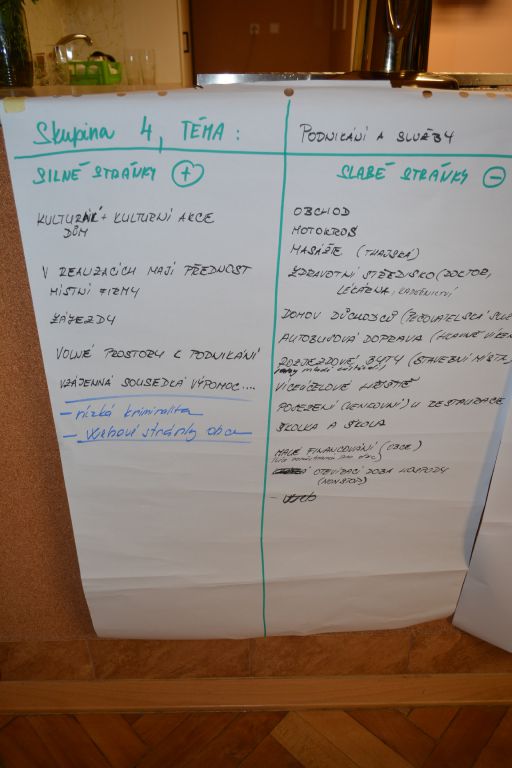 Skupina 4, TÉMA:
PODNIKÁNÍ A SLUŽBY
SILNÉ STRÁNKY +
KULTURNÍ + KULTURNÍ AKCE
DŮM
V REALIZACÍCH MAJÍ PŘEDNOST
MÍSTNÍ FIRMY
ZÁJEZDY
VOLNÉ PROSTORY K PODNIKÁNÍ
VZÁJEMNÁ SOUSEDKÁ VÝPOMOC....
- nízká kriminalita
- webové stránky obce
SLABÉ STRÁNKY -
OBCHOD
MOTOKROS
MASÁŽE (THAJSKÁ)
ZDRAVOTNÍ STŘEDISKO (DOKTOR,
LÉKÁRNA, KADEŘNICTVÍ
DOMOV DŮCHODCŮ (PEČOVATELSKÁ SLU
AUTOBUSOVÁ DOPRAVA (HLAVNĚ VÍKEN
ROZJEZDOVÉ BYTY (STAVEBNÍ MÍSTA
VÍCEÚČELOVÉ HŘIŠTĚ
POSEZENÍ (VENKOVNÍ) U RESTAURACE
ŠKOLKA A ŠKOLA
MALÉ FINANCOVÁNÍ (OBCE)
OTEVÍRACÍ DOBA HOSPODY
(NONSTOP)